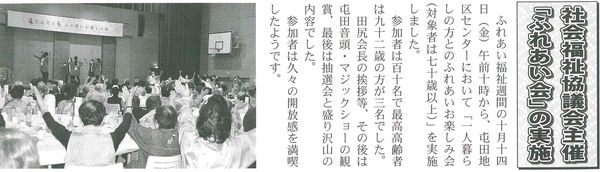 社会福祉協議会主催
「ふれあい会」の実施
ふれあい福祉週間の十月十四
日(金)午前十時から、屯田地
区センターにおいて「一人暮ら
しの方とのふれあいお楽しみ会
(対象者は七十歳以上)」を実施
しました。
参加者は百十名で最高高齢者
は九十二歳の方が三名でした。
田尻会長の挨拶等、その後は
屯田音頭・マジックショーの観
賞、最後は抽選会と盛り沢山の
内容でした。
参加者は久々の開放感を満喫
したようです。